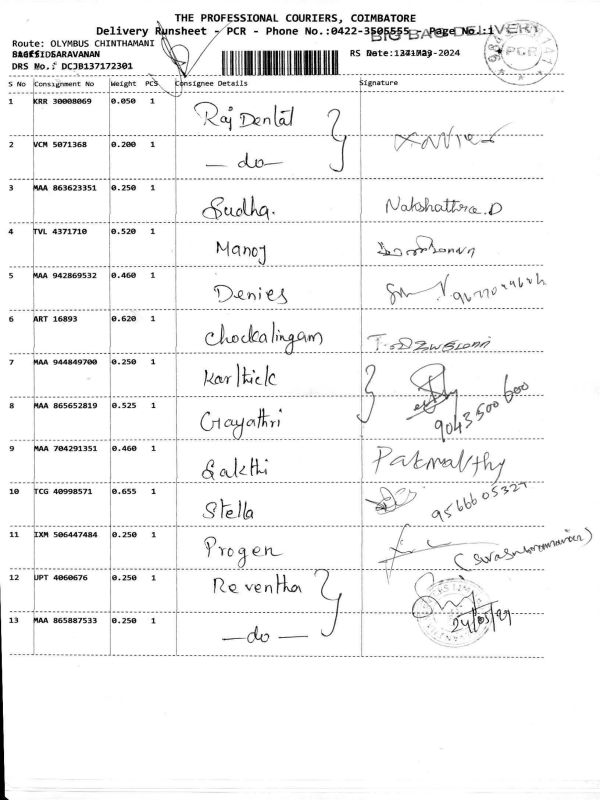 THE PROFESSIONAL COURIERS, COIMBATORE
Delivery Runsheet - PCR - Phone No.:0422-3505555 Page No.:1
BIG BAG DELIVERY
Route: OLYMBUS CHINTHAMANI
RS No.:
-2024
SARAVANAN
DRS No.: DCJB137172301
PCR
S No Consignment No Weight PCS Consignee Details Signature
1 KRR 30008069 0.050 1 Raj Dental
2 VCM 5071368 0.200 1 — do — Xavier
3 MAA 863623351 0.250 1 Sudha. Nakshathra.D
4 TVL 4371710 0.520 1 Manoj
5 MAA 942869532 0.460 1 Denies
6 ART 16893 0.620 1 Chockalingam
7 MAA 944849700 0.250 1 Karthick
8 MAA 865652819 0.525 1 Gayathri 9043500600
9 MAA 704291351 0.460 1 Sakthi
10 TCG 40998571 0.655 1 Stella 9566605327
11 IXM 506447484 0.250 1 Progen
12 UPT 4060676 0.250 1 Reventha
13 MAA 865887533 0.250 1 — do —